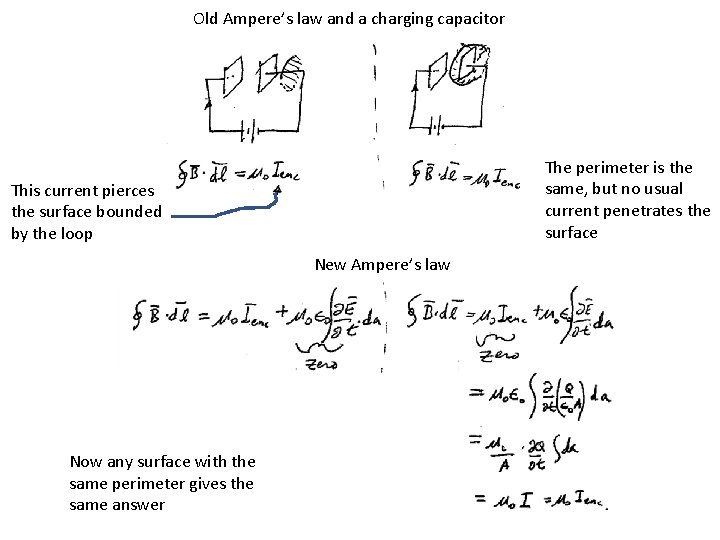 Old Ampere's law and a charging capacitor
∮B̄·d̄l = μ₀Ienc
∮B̄·d̄l = μ₀Ienc
This current pierces
the surface bounded
by the loop
The perimeter is the
same, but no usual
current penetrates the
surface
New Ampere's law
∮B̄·d̄l = μ₀Ienc + μ₀ε₀∫∂Ē/∂t·da
zero
∮B̄·d̄l = μ₀Ienc + μ₀ε₀∫∂Ē/∂t·da
zero
= μ₀ε₀∫∂/∂t(Q/ε₀A)da
= μ₀/A · ∂Q/∂t ∫da
= μ₀I = μ₀Ienc.
Now any surface with the
same perimeter gives the
same answer